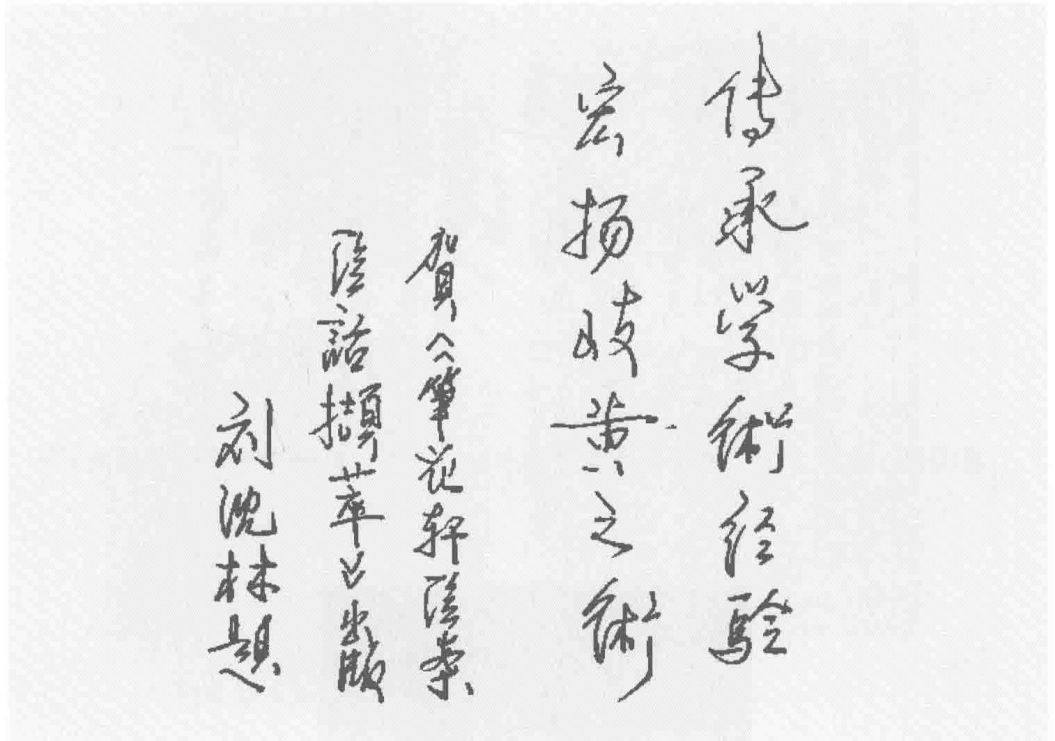 传承学術经験
宏扬岐黄之術
賀《筆花轩医案
医話擷萃》出版
刘沈林题